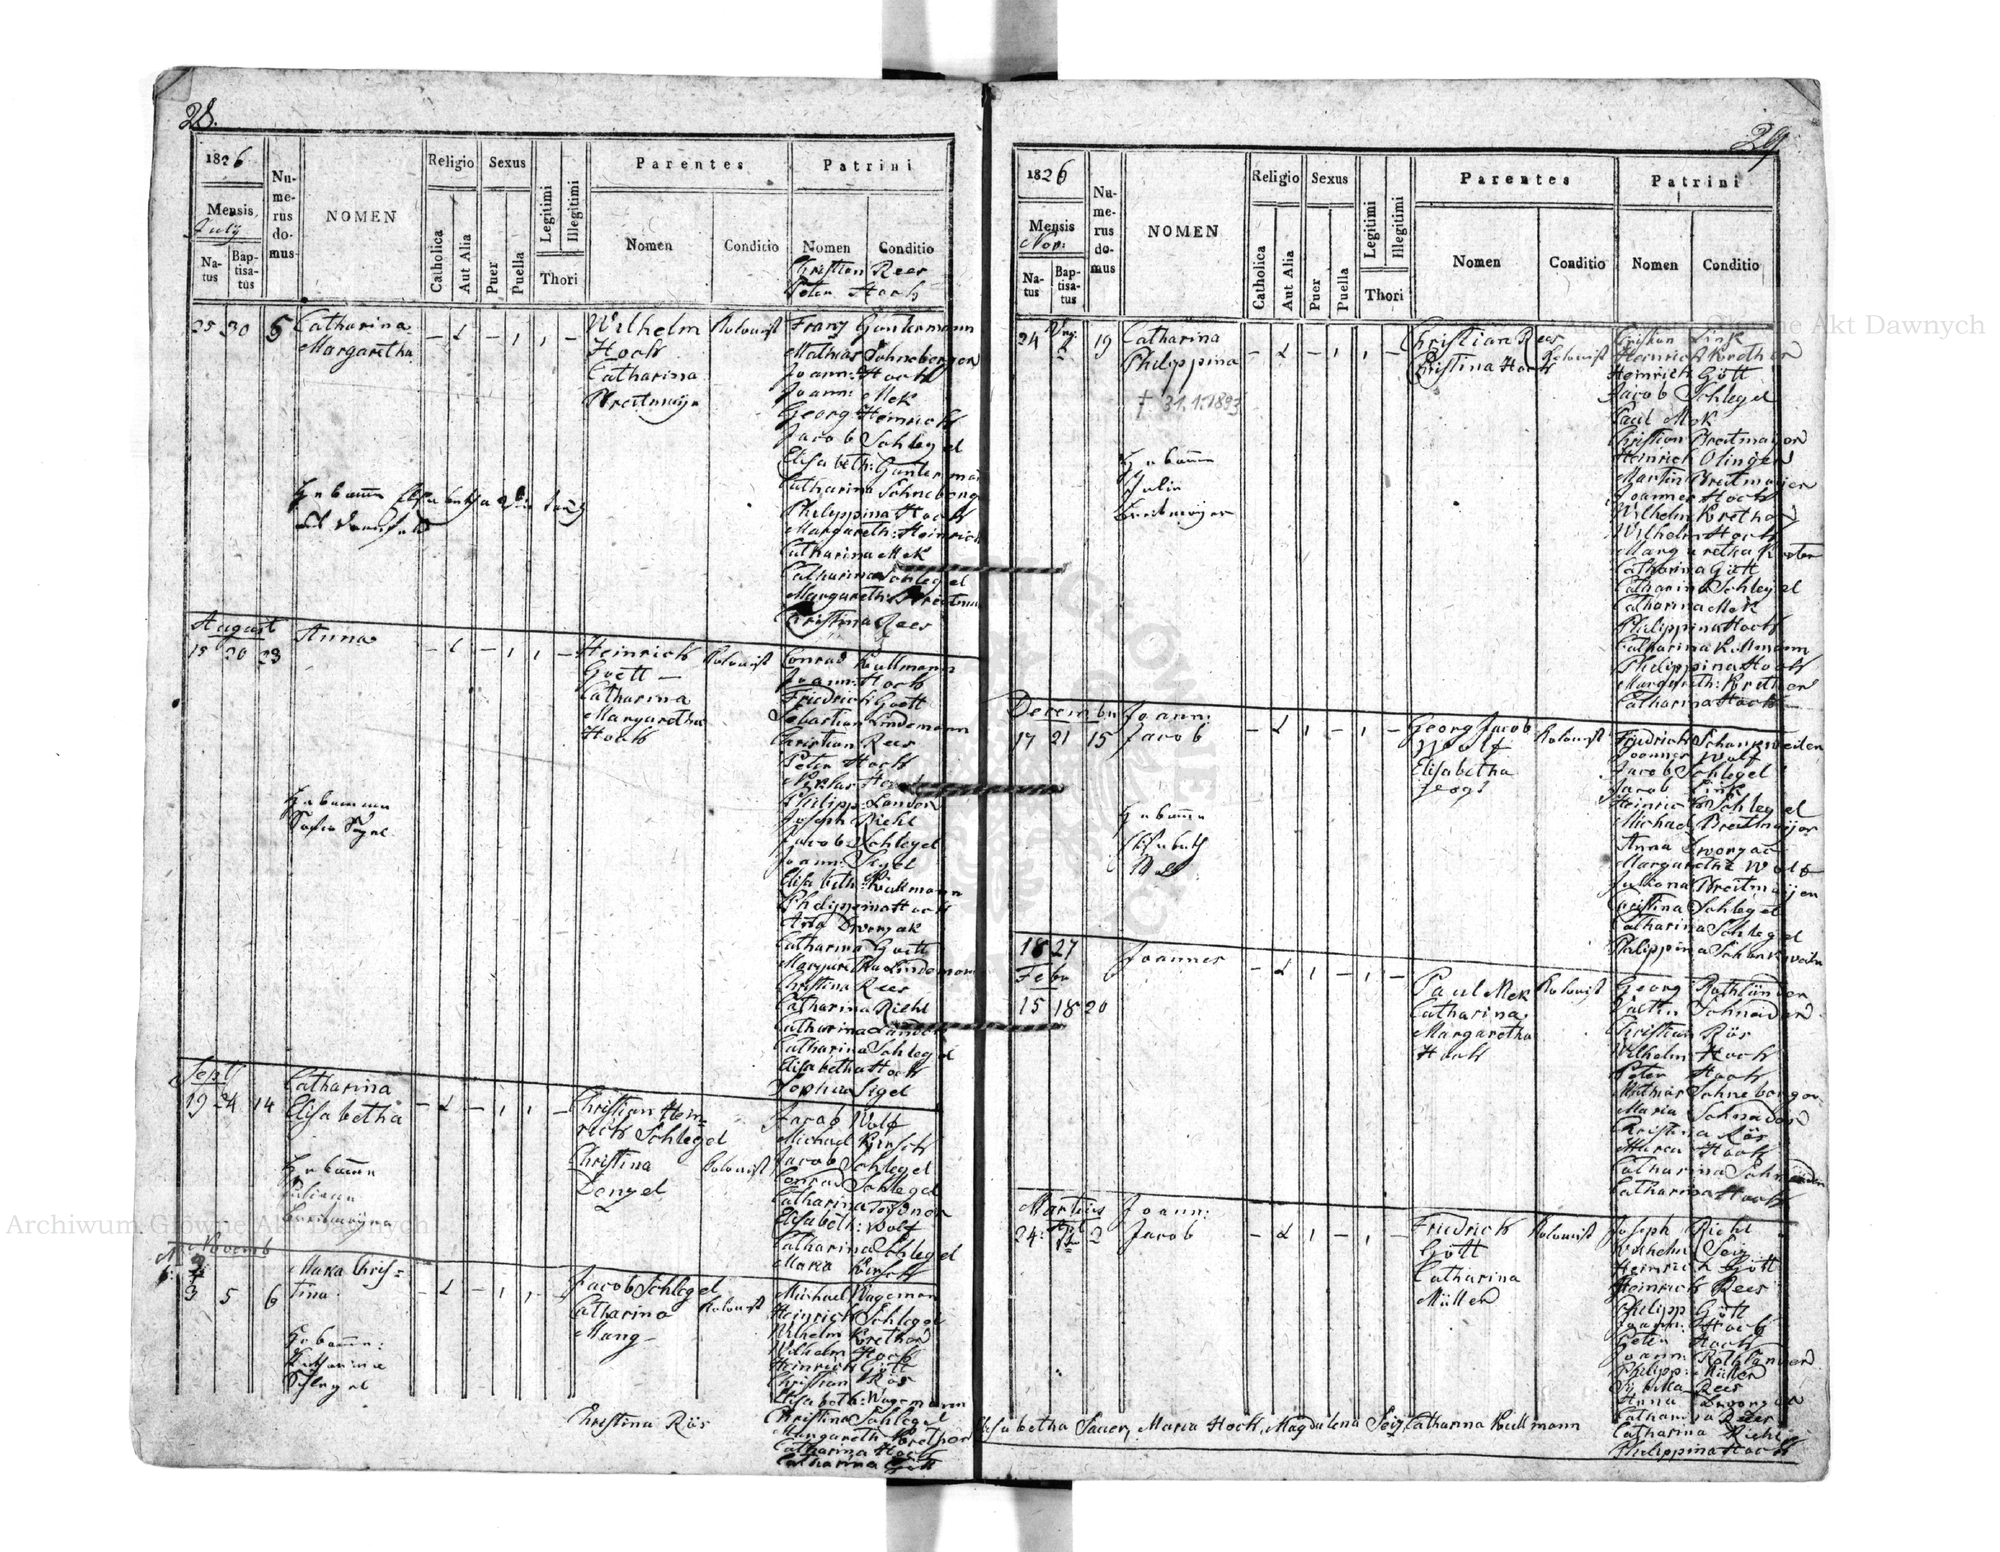 28.
1826
Mensis
July
Natus
Baptisatus
Numerus domus
NOMEN
Religio
Catholica
Aut Alia
Sexus
Puer
Puella
Legitimi
Illegitimi
Thori
Parentes
Nomen
Conditio
Patrini
Nomen
Conditio
Christian Rees
Peter Hoch
25 30 5 Catharina Margaretha
Wilhelm Hoch
Catharina
Breitmeÿr
Kolonist
Franz Guntermann
Mathias Schneberger
Joann: Hoch
Joann: Mek
Georg Heinrich
Jacob Schlegel
Elisabeth: Gunterman
Catharina Schneberge
Philippina Hoch
Margareth: Heinrich
Catharina Mek
Catharina Schlegel
Margareth: Breitma
Christina Rees
August
15 20 23 Anna
Heinrich
Goett
Catharina
Margaretha
Hoch
Kolonist
Conrad Kullmann
Joann: Hoch
Friedrich Goett
Sebastian Lindemann
Christian Rees
Peter Hoch
Philipp: Lander
Joseph Riehl
Jacob Schlegel
Joann: Sigel
Elisabeth: Kulmann
Philippina Hoch
Anna Dworzak
Catharina Goett
Margaretha Lindeman
Christina Rees
Catharina Riehl
Catharina Lander
Catharina Schlegel
Elisabetha Hoch
Sophia Sigel
Hebamme
Sept
19 24 14 Catharina
Elisabetha
Christian Hein=
rich Schlegel
Christina
Denzel
Kolonist
Jacob Wolf
Michael Kirsch
Jacob Schlegel
Conrad Schlegel
Elisabeth: Wolf
Catharina Schlegel
Maria Kirsch
Hebamme
Novemb
3 5 6 Maria Chris=
tina
Jacob Schlegel
Catharina
Mang
Kolonist
Michael Wageman
Heinrich Schlegel
Wilhelm Krether
Wilhelm Hoch
Heinrich Gött
Christian Rös
Elisabeth: Wagemann
Christina Schlegel
Margareth: Krether
Catharina Hoch
Catharina Gött
Christina Rös
Hebamme:
Katharina
Schlegel
29
1826
Mensis
Nov:
Natus
Baptisatus
Numerus domus
NOMEN
Religio
Catholica
Aut Alia
Sexus
Puer
Puella
Legitimi
Illegitimi
Thori
Parentes
Nomen
Conditio
Patrini
Nomen
Conditio
24 19 Catharina
Philippina
† 31.1.1893
Christian Rees
Christina Hoch
Kolonist
Christian Link
Heinrich Krether
Heinrich Gött
Jacob Schlegel
Paul Mek
Christian Breitmayer
Heinrich Olinger
Martin Breitmaier
Joannes Hoch
Wilhelm Krether
Wilhelm Hoch
Margaretha Kreter
Catharina Gött
Catharina Schlegel
Catharina Mek
Philippina Hoch
Catharina Kullmann
Philippina Hoch
Margareth: Krether
Catharina Hoch
Hebamme
Julia
Breitmayer
December
17 21 15 Joann:
Jacob
Georg Jacob
Wolf
Elisabetha
Kolonist
Friedrich Schankweiler
Joannes Wolf
Jacob Schlegel
Jacob Link
Heinrich Schlegel
Michael Breitmeijer
Anna Dworzac
Margaretha Wolf
Juliana Breitmeijer
Christina Schlegel
Catharina Schlegel
Philippina Schankweiler
Hebamme
Elisabeth
1827
Febr
15 18 20 Joannes
Paul Mek
Catharina
Margaretha
Hoch
Kolonist
Georg Rothländer
Christian Rös
Wilhelm Hoch
Peter Hoch
Mathias Schneberger
Maria Schneider
Christina Rös
Maria Hoch
Catharina Hoch
Martius
24 2 Joann:
Jacob
Friedrich
Gött
Catharina
Müller
Kolonist
Joseph Riehl
Wilhelm Seiz
Heinrich Gött
Heinrich Rees
Philipp Gött
Joann: Hoch
Peter Hoch
Joann: Rothländer
Philipp: Müller
Anna Dworzak
Catharina Riehl
Philippina Hoch
Elisabetha Sauer, Maria Hoch, Magdalena Seiz, Catharina Kullmann
Archiwum Główne Akt Dawnych
Archiwum Główne Akt Dawnych